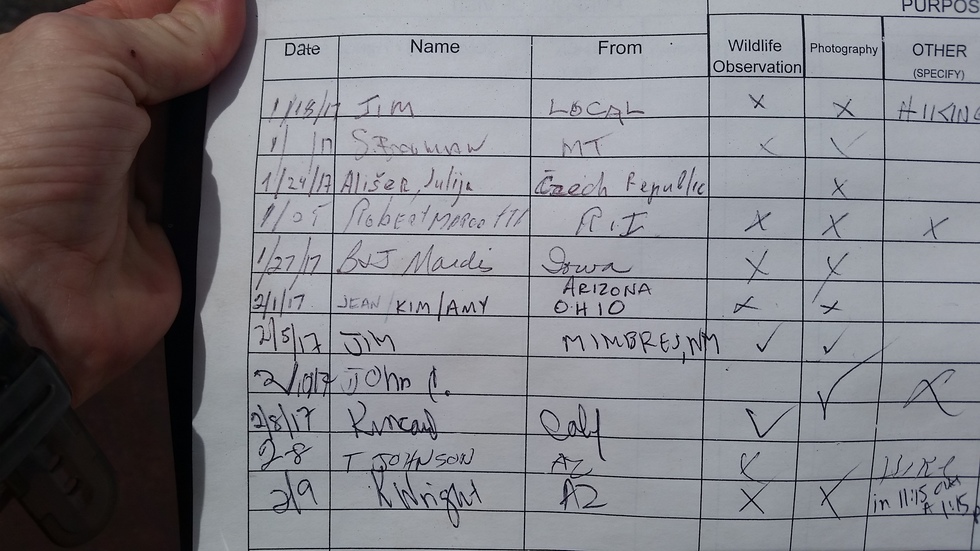 PURPOS
Date Name From Wildlife Observation Photography OTHER (SPECIFY)
1/13/17 JIM LOCAL X X HIKING
1/ /17 MT
1/24/17 Ališer, Julija Czech Republic X
Robert R.I X X X
1/27/17 B&J Mardis Iowa X X
ARIZONA
2/1/17 JEAN/KIM/AMY OHIO X X
2/5/17 JIM MIMBRES, NM ✓ ✓
John C. ✓ X
2/8/17 Kincaid Calf ✓
2-8 T JOHNSON AZ X HIKE
2/9 K Wright AZ X X in 11:15 out
1:15 p